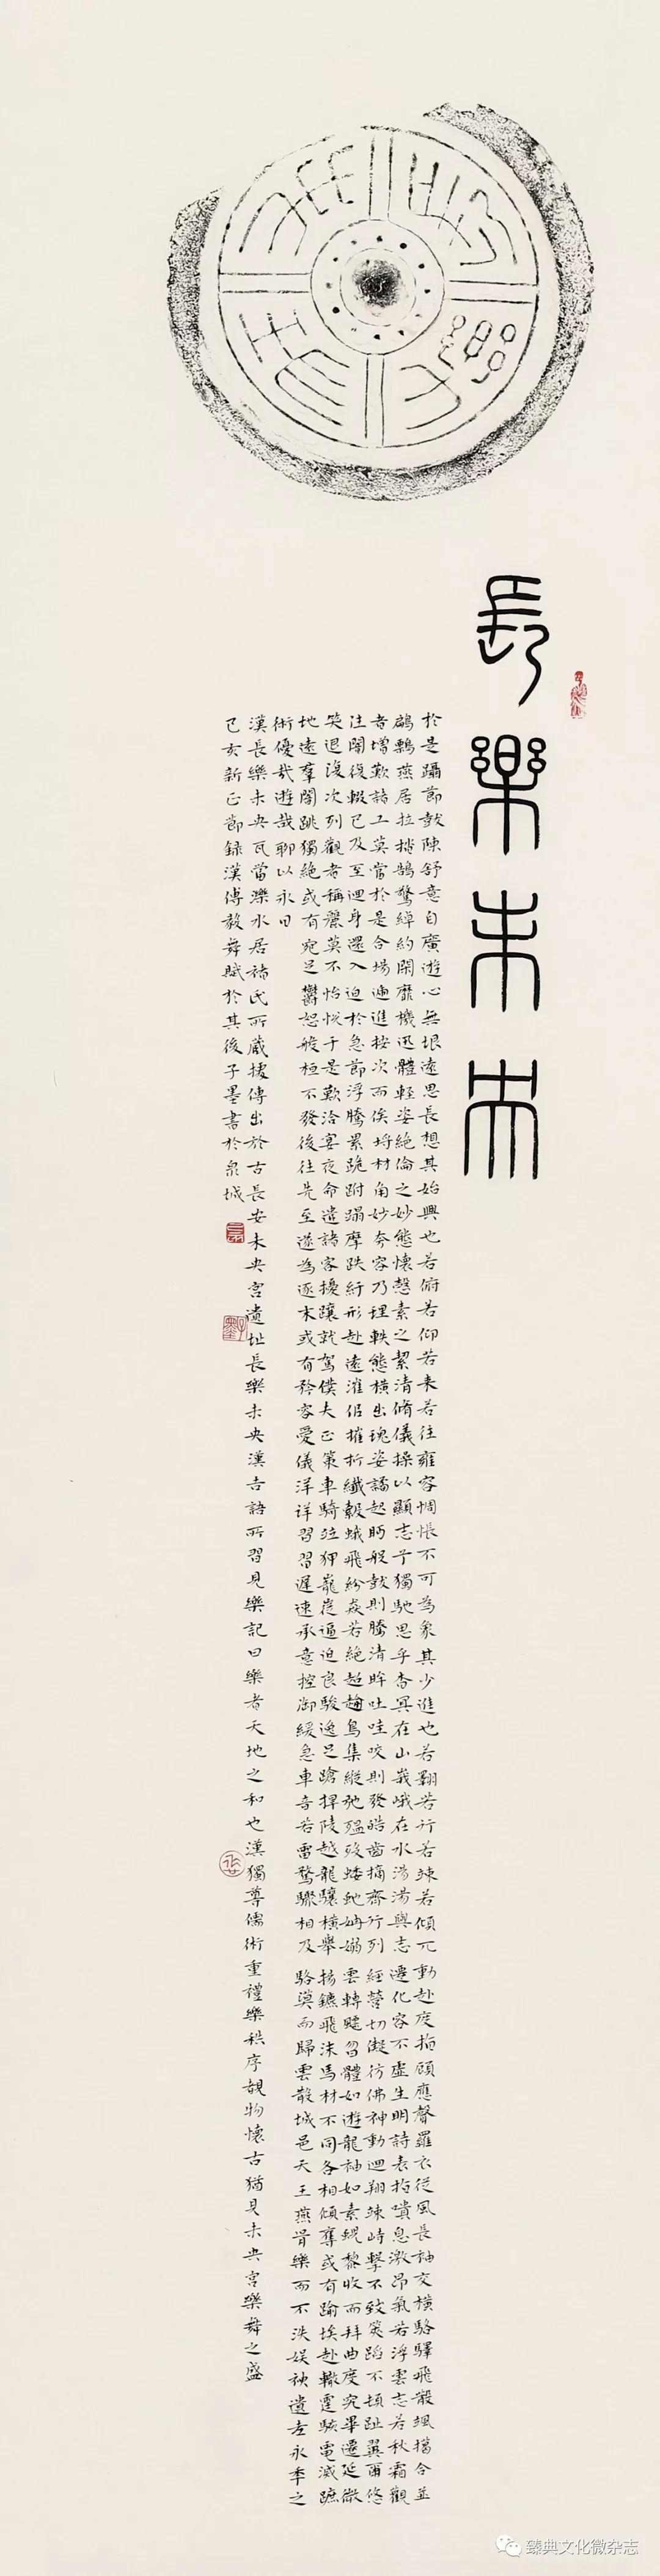 長樂未央
長樂未央
於是躡節鼓陳舒意自廣遊心無垠遠思長想其始興也若俯若仰若來若往雍容惆悵不可為象其少進也若翾若行若竦若傾兀動赴度指顧應聲羅衣從風長袖交橫駱驛飛散颯擖合並
鶣䴘燕居拉㧺鵠驚綽約閑靡機迅體輕姿絕倫之妙態懷愨素之絜清脩儀操以顯志兮獨馳思乎杳冥在山峨峨在水湯湯與志遷化容不虛生明詩表指嘳息激昂氣若浮雲志若秋霜觀
者增歎諸工莫當於是合場遞進按次而俟埒材角妙夸容乃理軼態橫出瑰姿譎起眄般鼓則騰清眸吐哇咬則發皓齒摘齊行列經營切儗彷彿神動迴翔竦峙擊不致筴蹈不頓趾翼爾悠
往闇復輟已及至迴身還入迫於急節浮騰累跪跗蹋摩跌紆形赴遠漼似摧折纖縠蛾飛紛猋若絕超趫鳥集縱弛殟歿蜲蛇姌嫋雲轉飄曶體如遊龍袖如素蜺黎收而拜曲度究畢遷延微
笑退復次列觀者稱麗莫不怡悅于是歡洽宴夜命遣諸客擾躟就駕僕夫正策車騎竝狎巃嵸逼迫良駿逸足蹌捍陵越龍驤橫舉揚鑣飛沫馬材不同各相傾奪或有踰埃赴轍霆駭電滅蹠
地遠羣闇跳獨絕或有宛足鬱怒般桓不發後往先至遂為逐末或有矜容愛儀洋洋習習遲速承意控御緩急車音若雷騖驟相及駱漠而歸雲散城邑天王燕胥樂而不泆娛神遺老永年之
術優哉遊哉聊以永日
漢長樂未央瓦當濼水居褚氏所藏據傳出於古長安未央宮遺址長樂未央漢吉語所習見樂記曰樂者天地之和也漢獨尊儒術重禮樂秩序覩物懷古猶見未央宮樂舞之盛
己亥新正節錄漢傅毅舞賦於其後子墨書於泉城
臻典文化微杂志